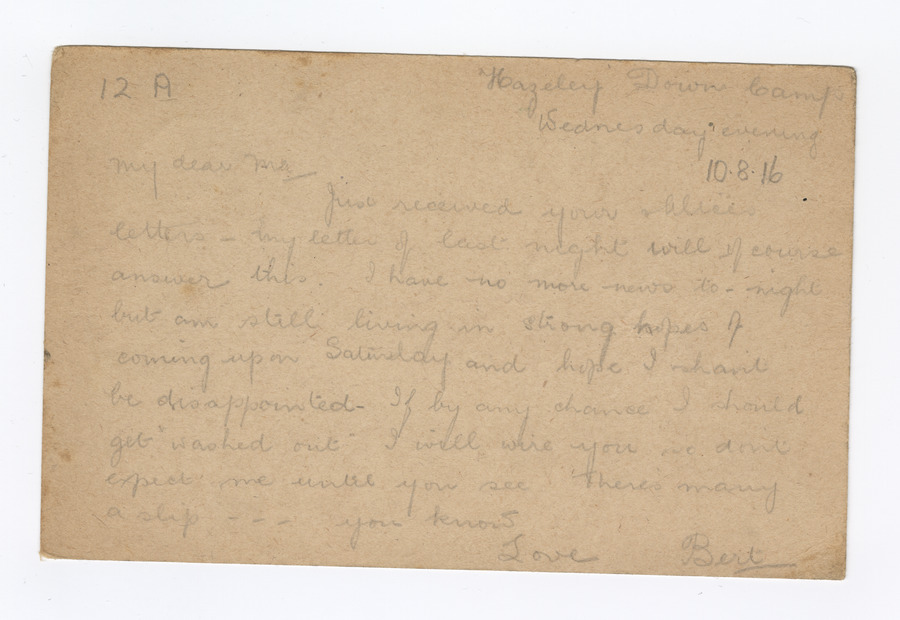 12 A
Hazeley Down Camp
Wednesday evening
10.8.16
My dear Ma
Just received your & Alice's
letters - my letter of last night will of course
answer this. I have no more news to-night
but am still living in strong hopes of
coming up on Saturday and hope I shant
be disappointed - If by any chance I should
get "washed out" I will wire you so dont
expect me until you see There's many
a slip - - - you know
Love Bert